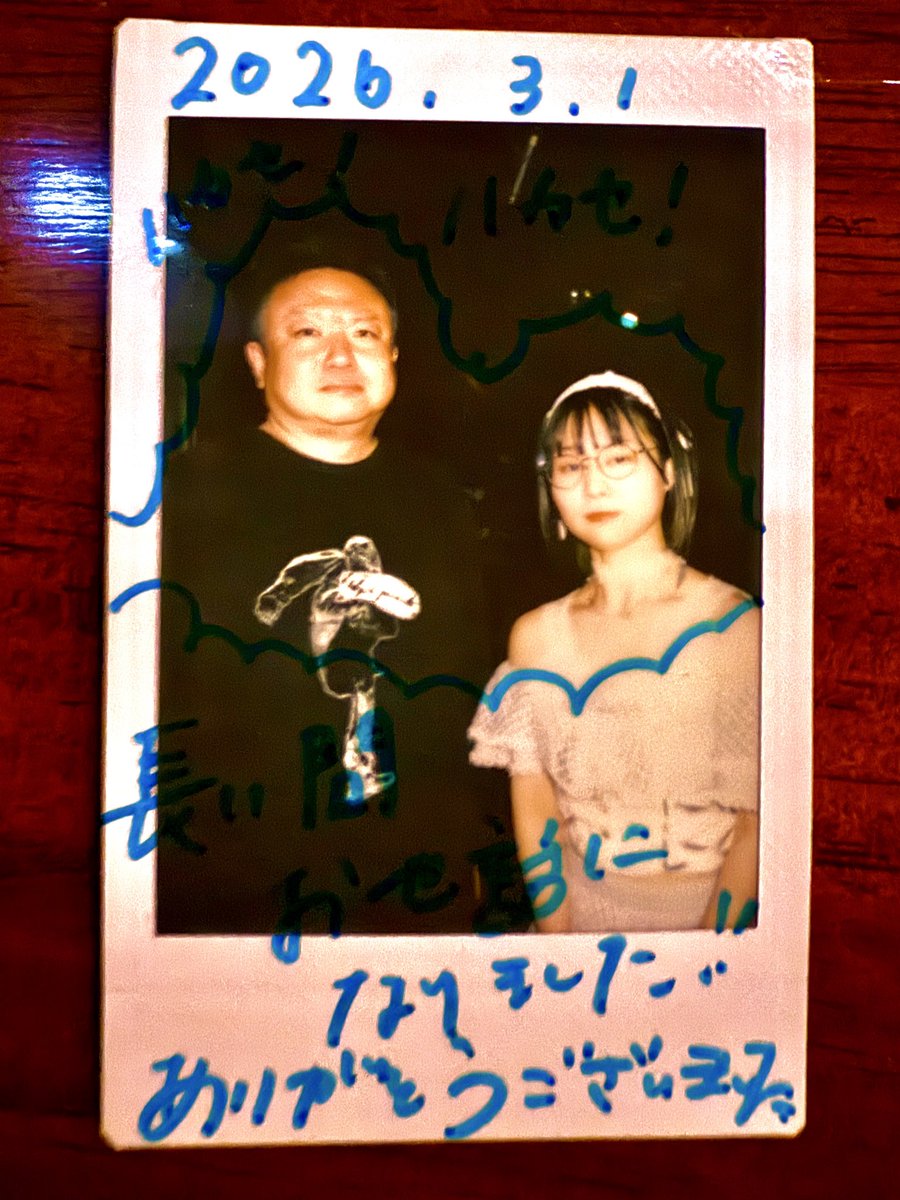 2026.3.1
ハカセ!
長い間
おせ話に
なりました!!
ありがとうございます